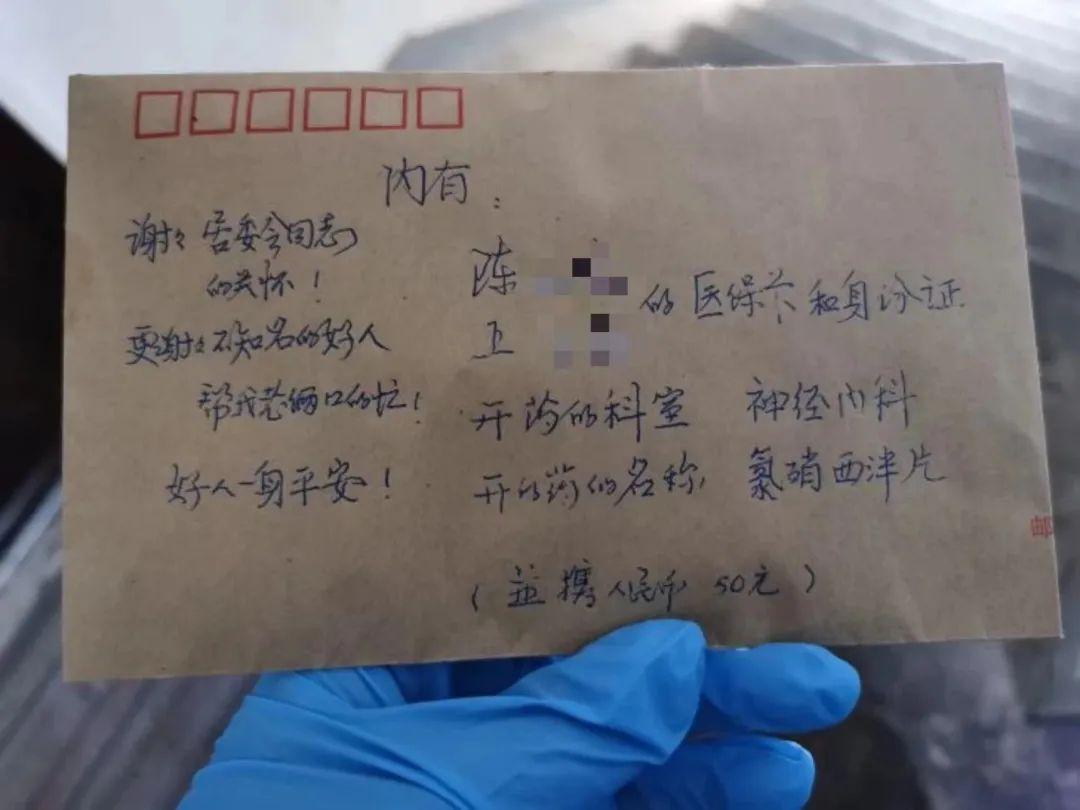 内有：
谢々居委会同志
的关怀！
更谢々不知名的好人
帮我老俩口的忙！
好人一身平安！
陈
卫
的医保卡和身份证
开药的科室 神经内科
开的药的名称, 氯硝西泮片
（并携人民币50元）
邮